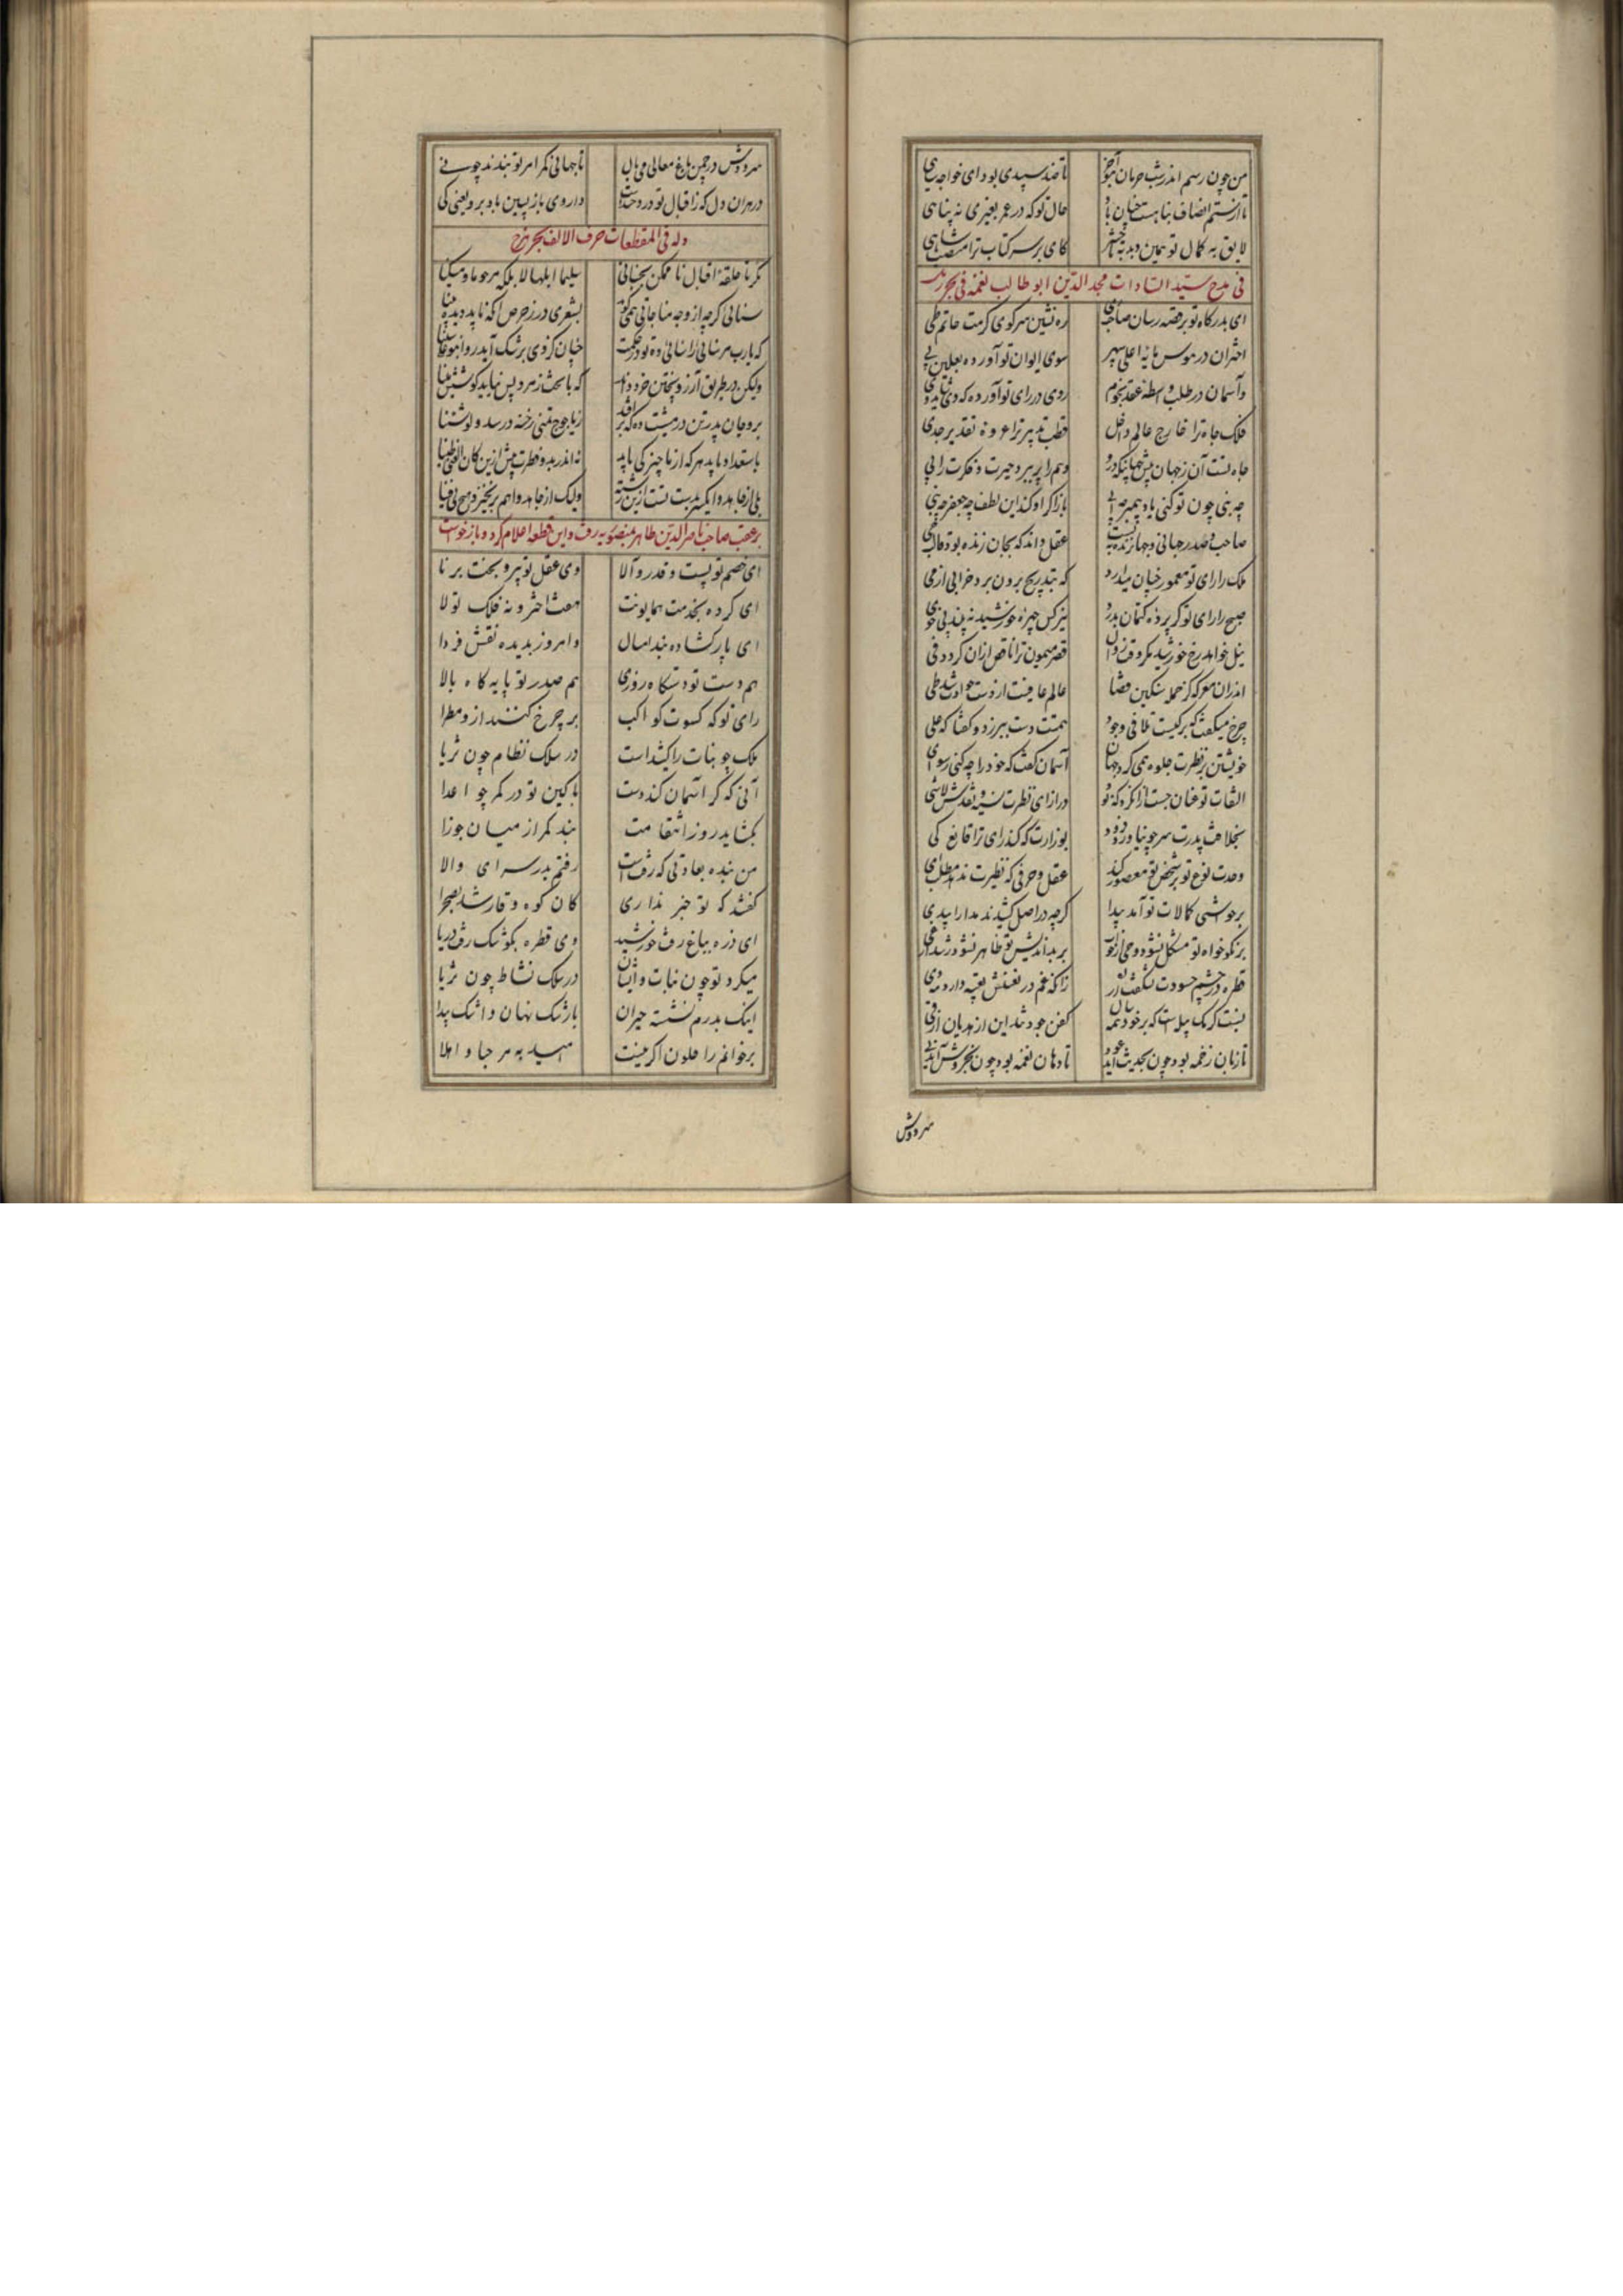 من چون رسم اندر شب حرمان تا چند سپیدی بود ای خواجه سیاهی
تا از ستم انصاف پناهست چنان باد حال تو که در عمر بغیری نه پناهی
لایق به کمال تو همین دید به کای بر سر کتاب ترا منصب شاهی
فی مدح سید السادات مجد الدین ابو طالب نعمه فی بحر رمل
ای بدرگاه تو بر قصه رسان صاحب ری ره نشین سر کوی کرمت حاتم طی
اختران در هوس پایهٔ اعلی سپهر سوی ایوان تو آورده بعلیین پی
وآسمان در طلب واسطهٔ عقد نجوم روی در رای تو آورده که
فلک جاه ترا خارج عالم داخل قطب تدبیر ترا عروهٔ تقدیر جدی
جاه تست آن ز جهان بیش جهانیکه درو وهم را پی ببرد حیرت و فکرت را پی
چه بنی چون تو کنی یاد پیمبر چه ابی باز اگر او کند این لطف چه جعفر چه بنی
صاحب و صدر جهانی و جهان زنده بتست عقل داند که بجان زنده بود قالب حی
ملک را رای تو معمور چنان میدارد که بتدریج برون برد خرابی از می
صبح را رای تو گر پردهٔ کتمان بدرد نیز کس چهرهٔ خورشید نبیند
نیل خواهد رخ خورشید مگر وقت زوال قصر میمون ترا ناقص ازان کردد فی
اندران معرکه کز حملهٔ سنگین قضا عالم عافیت از دست حوادث شد طی
چرخ میگفت که بر کیست تلافی وجود همتت دست ببر زد و گفتا که علی
خویشتن بر نظرت جلوه همی کرد جهان آسمان گفت که خود را چه کنی رسوا
التفات تو عنان جست ازانکرد که تو در ازای نظرت نسیه و نقدش لاشی
بخلافت پدرت سر چو نیاورد فرود بوزارت که کند رای ترا قانع کی
وحدت نوع تو بر شخص تو مقصور کند عقل و حرفی که نظیرت ندهد مطلب ای
بر حواشی کمالات تو آمد پیدا گرچه در اصل کشیدند مدارا
بر نکوخواه تو مشکل نشود وحی از خواب بر بداندیش تو ظاهر نشود رشد از غی
قطره در چشم حسودت نشگفت ار زانکه غم در نفسش تعبیه دارد
نیست کرمک پیله است که بر خود همه سال کفن خود تند این از دهن آن از قی
تا زبان زخمه بود چون بحدیث آید عود تا دهان نغمه بود چون بخروش آید نی
سرو وش
سرو وش در چمن باغ معالی می بال تا جهانی کمر امر تو بندند چو نی
در هر آن دل که ز اقبال تو دردحسدست داروی باز پسین باد برو یعنی کی
وله فی المقطعات حرف الالف بحر هزج
نگر تا حلقهٔ اقبال ناممکن نجنبانی سلیما ابلها لا بلکه مرحوما و مسکینا
سنائی گرچه از وجه مناجاتی همی گوید بشعری در ز حرص آنکه یابد دیدهٔ بینا
که یارب مر سنائی را سنائی ده تو در حکمت چنان کز وی برشک آید روان بوعلی سینا
ولیکن در طریق آرزو پختن خرد داند که با تخت زمرد بس نیاید کوشش مینا
برو جان پدر تن در مشیت ده که دیر افتد ز یاجوج تمنی رخنه در سد ولو شئنا
باستعداد یابد هر که از ما چیزکی یابد نه اندر بدو فطرت پیش ازین کان الفتی طینا
بلی از جاهدوا یکسر بدست تست این رشته ولیک از جاهدوا هم بر نخیزد هیچ بی فینا
بر عقب صاحب ناصر الدین طاهر بمنصوریه رفت و این قطعه اعلام کرد و بار خواست
ای خصم تو پست و قدر والا وی عقل تو پیر و بخت برنا
ای کرده بخدمت همایونت هفت اختر و نه فلک تولا
ای پار گشاده بند امسال وامروز بدیده نقش فردا
هم دست تو دستگاه روزی هم صدر تو پایه گاه بالا
رای تو که کسوت کواکب بر چرخ کنند ازو مطرا
ملک چو بنات را کشیداست در سلک نظام چون ثریا
آنی که گر آسمان کند دست با کین تو در کمر چو اعدا
بگشاید روز انتقامت بند کمر از میان جوزا
من بنده بعادتی که رفتست رفتم بدر سرای والا
گفتند که تو خبر نداری کان کوه وقار شد بصحرا
ای ذره بباغ رفت خورشید وی قطره بکوشک رفت دریا
میگرد تو چون نبات و ایشان در سلک نشاط چون ثریا
اینک بدرم نشسته حیران با رشک نهان و اشک پیدا
بر خوانم راحلون اگر نیست امید به مرحبا و اهلا